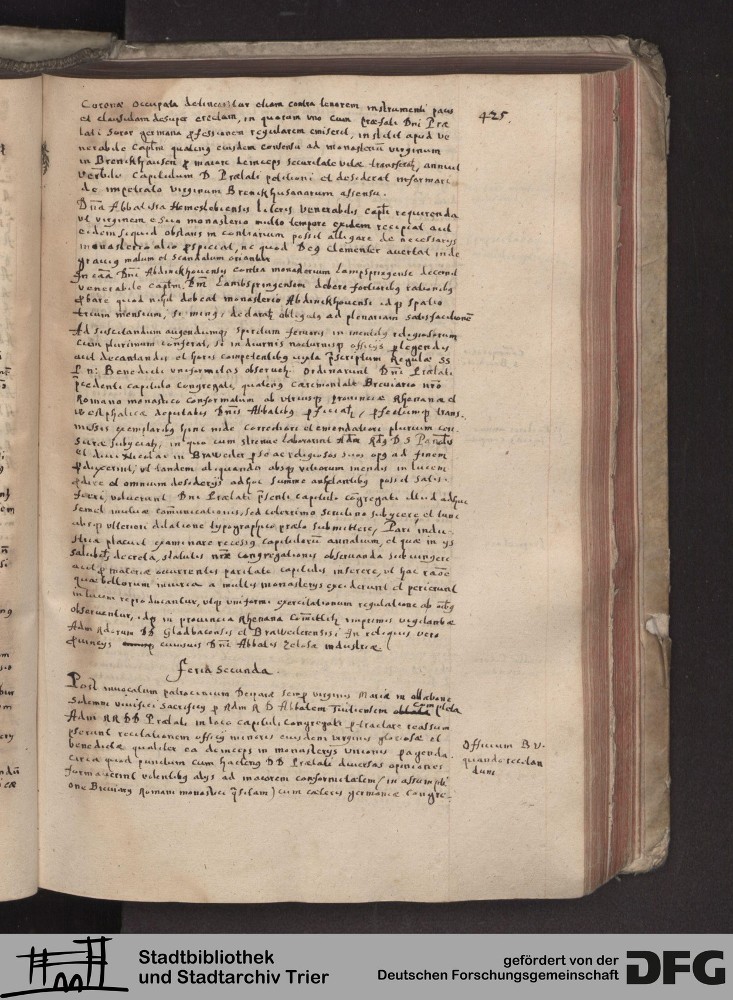 425.
Coronæ occupata detineantur etiam contra tenorem instrumenti pacis
et clausulam desuper erectam, in quorum uno cum præfati Dni Præ
lati soror germana professionem regularem emiserit, institit apud ve
nerabile Captm quateng eiusdem consensu ad monasterium virginum
in Brenckhausen p maiore deinceps securitate vitæ transferat, annuit
verbile Capitulum D Prælati petitioni et desiderat informari
de impetrato virginum Brenckhusanarum assensu.
Dna Abbatissa Hemeslebiensis literis venerabilis captli requirenda
ut virginem e suo monasterio multo tempore exulem recipiat aut
eidem siquid obstans in contrarium possit alligare de necessarijs
in monasterio alio pspiciat, ne quod Deg clementer avertat inde
gravig malum et scandalum oriantur
In caa Dni Abdinckhovensis contra monasterium Lampspringense decernit
venerabile captlm, Dm Lambspringensem debere fortioribg rationibg
pbare quod nihil debeat monasterio Abdinckhovensi idqs spatio
trium mensium, si ming, declarat obligatg ad plenariam satisfactionem
Ad suscitandum augendumqs spiritum fervoris in mentibg religiosorum
cum plurimum conferat, si in diurnis nocturnisqs officijs plegendis
aut decantandis et horis competentibg iuxta pscriptum Regulæ SS
P n: Benedicti uniformitas observetur. Ordinarunt Dni Prælati
pcedenti capitulo congregati, quateng Cæremoniale Breviario nro
Romano monastico conformatum ab utriusqs provinciæ Rhenanæ et
westphalicæ deputatis Dnis Abbatibg pficiatur, pfectumqs trans
missis exemplaribg hinc inde correctiori et emendatiori plurium cen
suræ subyciatur, in quo cum strenue laborarint Adm Rdg D S Pantaleonis
et Dni Nicolai in Braweiler p se ac religiosos suos opg ad finem
pduxerint, ut tandem aliquando absqs vitiorum mendis in lucem
pdire et omnium desiderijs adhuc summe anhelantibg possit satis
fieri, voluerunt Dni Prælati psenti capitulo congregati illud adhuc
semel mutuæ communicationis, sed celerrimo scrutinio subycere, et tunc
absqs ulteriori dilatione typographico prælo submittere, Pari indu
stria placuit examinare recessg capitulorum annalium, et quæ in ijs
salubria decreta, statutis nræ congregationis observanda subiungere
aut p materiæ occurrentis paritate capitulis inserere, ut hac raoe
quæ bellorum iniuria a multis monasterijs exciderunt et perierunt
in lucem reproducantur, utqs uniformi exercitationum regulatione ab oibg
observentur, idqs in provincia Rhenana Comittitur imprimis vigilantiæ
Adm Rdorum DD Gladbacensis et Brawilerensis: In reliquis vero
provincijs cuiusvis Dni Abbatis zelosæ industriæ
Feria secunda.
Post invocatum patrocinium Deiparæ semp virginis Mariæ in oblatione
solemni vivifici sacrificij p Adm R D Abbatem Tuitiensem completa
Adm RR DD Prælati in loco capituli congregati ptractare reassum
pserunt recitationem officij minoris eiusdem virginis gloriosæ et
benedictæ qualiter ea deinceps in monasterijs unionis pagenda.
Circa quod punctum cum hacteng DD Prælati diversas opiniones
formaverint volentibg alijs ad maiorem conformitatem (in assumpti
one Breviarij Romani monastici qsitam) cum cæteris germaniæ Congre-
Officium B V.
quando recitan
dum
Stadtbibliothek
und Stadtarchiv Trier
gefördert von der
Deutschen Forschungsgemeinschaft
DFG